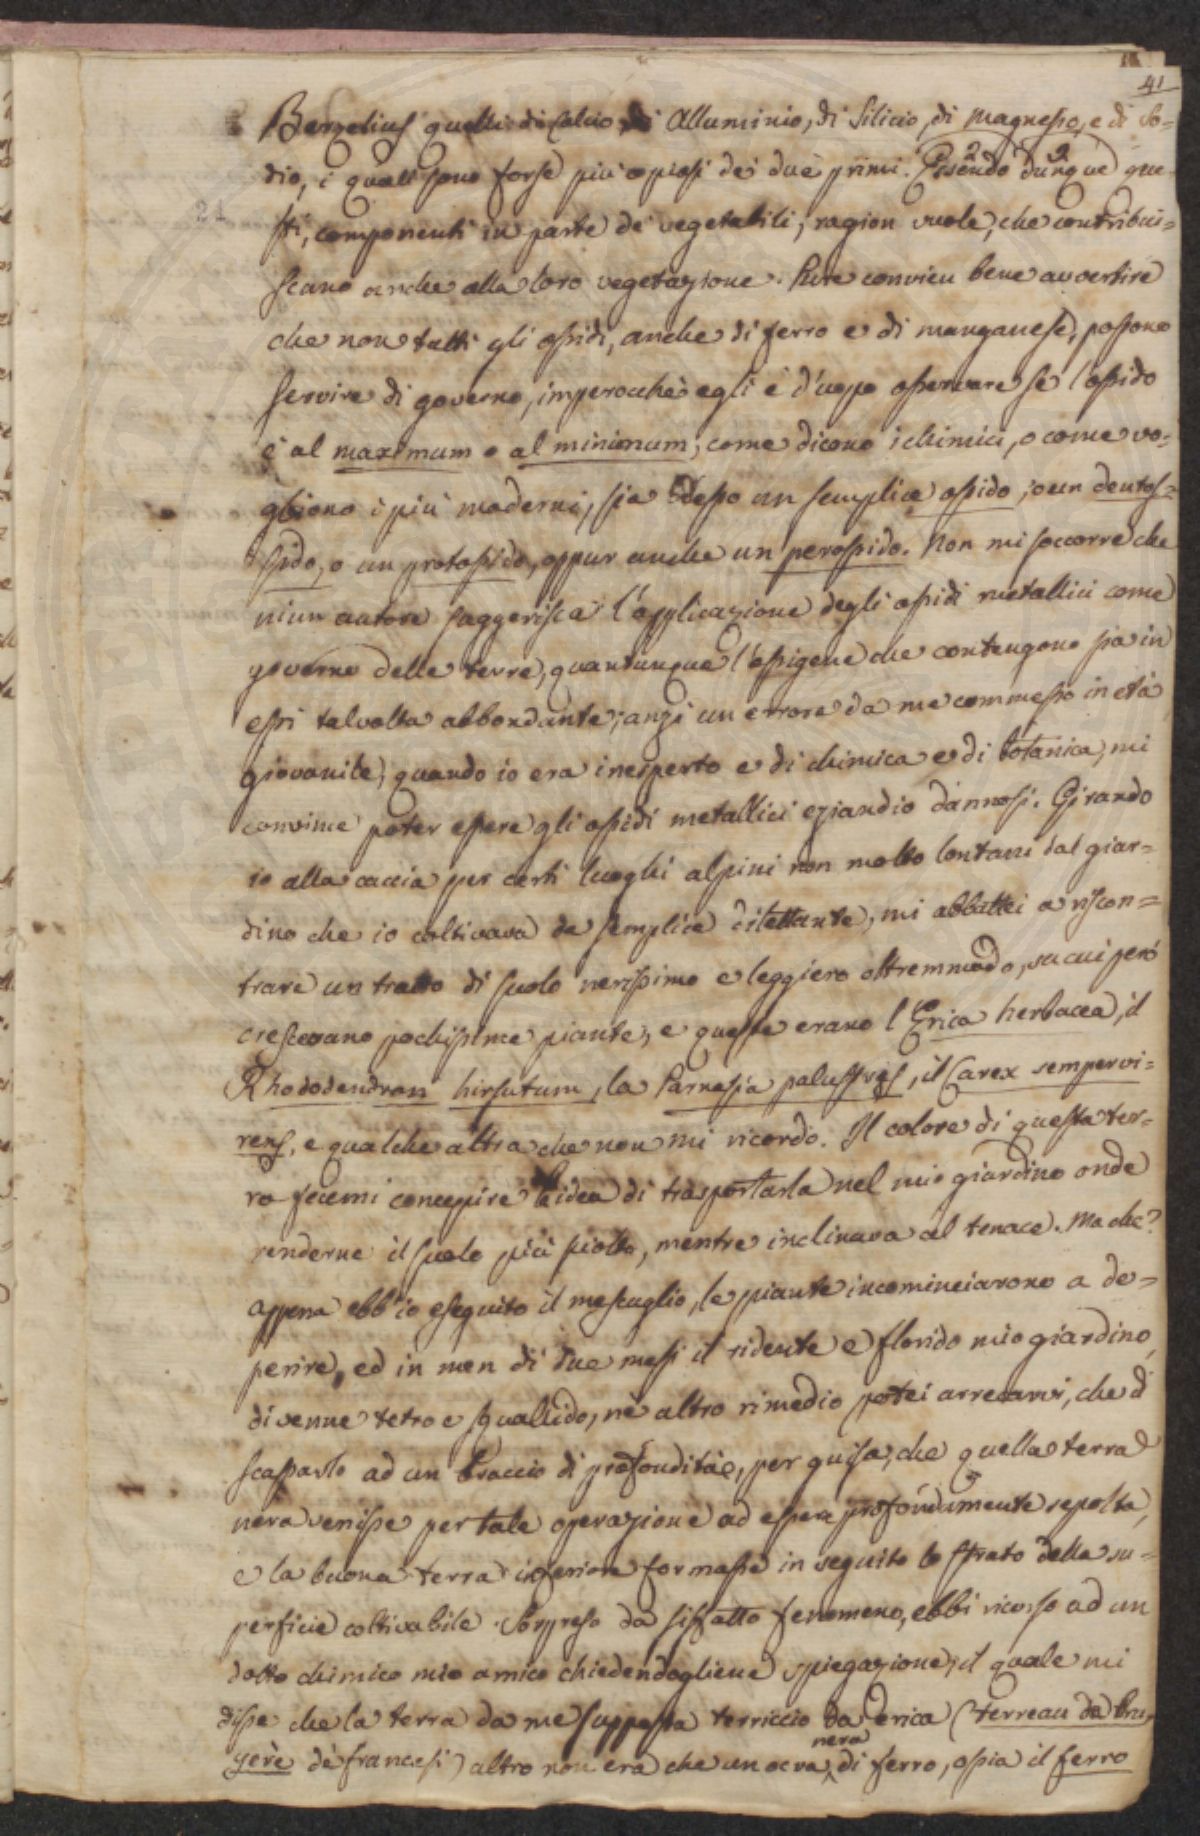 41
Berzelius quelli di Calcio di Alluminio, di Silicio, di Magnesio, e di So=
dio, i quali sono forse più copiosi dei due primi. Essendo dunque que-
sti, componenti in parte de' vegetabili, ragion vuole, che contribui=
scano anche alla loro vegetazione. Pure convien bene avvertire
che non tutti gli ossidi, anche di ferro e di manganese, possono
servire di governo, imperocchè egli è d'uopo osservare se l'ossido
è al maximum o al minimum, come dicono i chimici, o come vo=
gliono i più moderni, sia desso un semplice ossido, o un deutos=
sido, o un protossido, oppur anche un perossido. Non mi soccorre che
niun autore suggerisca l'applicazione degli ossidi metallici come
governo delle terre, quantunque l'ossigene che contengono sia in
essi talvolta abbondante; anzi un errore da me commesso in età
giovanile, quando io era inesperto e di chimica e di botanica, mi
convinse poter essere gli ossidi metallici eziandio dannosi. Girando
io alla caccia per certi luoghi alpini non molto lontani dal giar=
dino che io coltivava da semplice dilettante, mi abbattei a riscon=
trare un tratto di suolo nerissimo e leggiero oltremmodo, su cui però
crescevano pochissime piante, e queste erano l'Erica herbacea, il
Rhododendron hirsutum, la Parnasia palustris, il Carex sempervi=
rens, e qualche altra che non mi ricordo. Il colore di questa ter=
ra fecemi concepire l'idea di trasportarla nel mio giardino onde
renderne il suolo più sciolto, mentre inclinava al tenace. Ma che?
appena ebb'io eseguito il mescuglio, le piante incominciarono a de=
perire, ed in men di due mesi il ridente e florido mio giardino,
divenne tetro e squallido, nè altro rimedio potei arrecarvi, che di
scassarlo ad un braccio di profondità, per guisa, che quella terra
nera venisse per tale operazione ad essere profondamente sepolta,
e la buona terra inferiore formasse in seguito lo strato della su=
perficie coltivabile. Sorpreso da siffatto fenomeno, ebbi ricorso ad un
dotto chimico mio amico chiedendogliene spiegazione, il quale mi
disse che la terra da me supposta terriccio da erica (terreau de Bru-
yère de' francesi) altro non era che un ocra nera di ferro, ossia il ferro